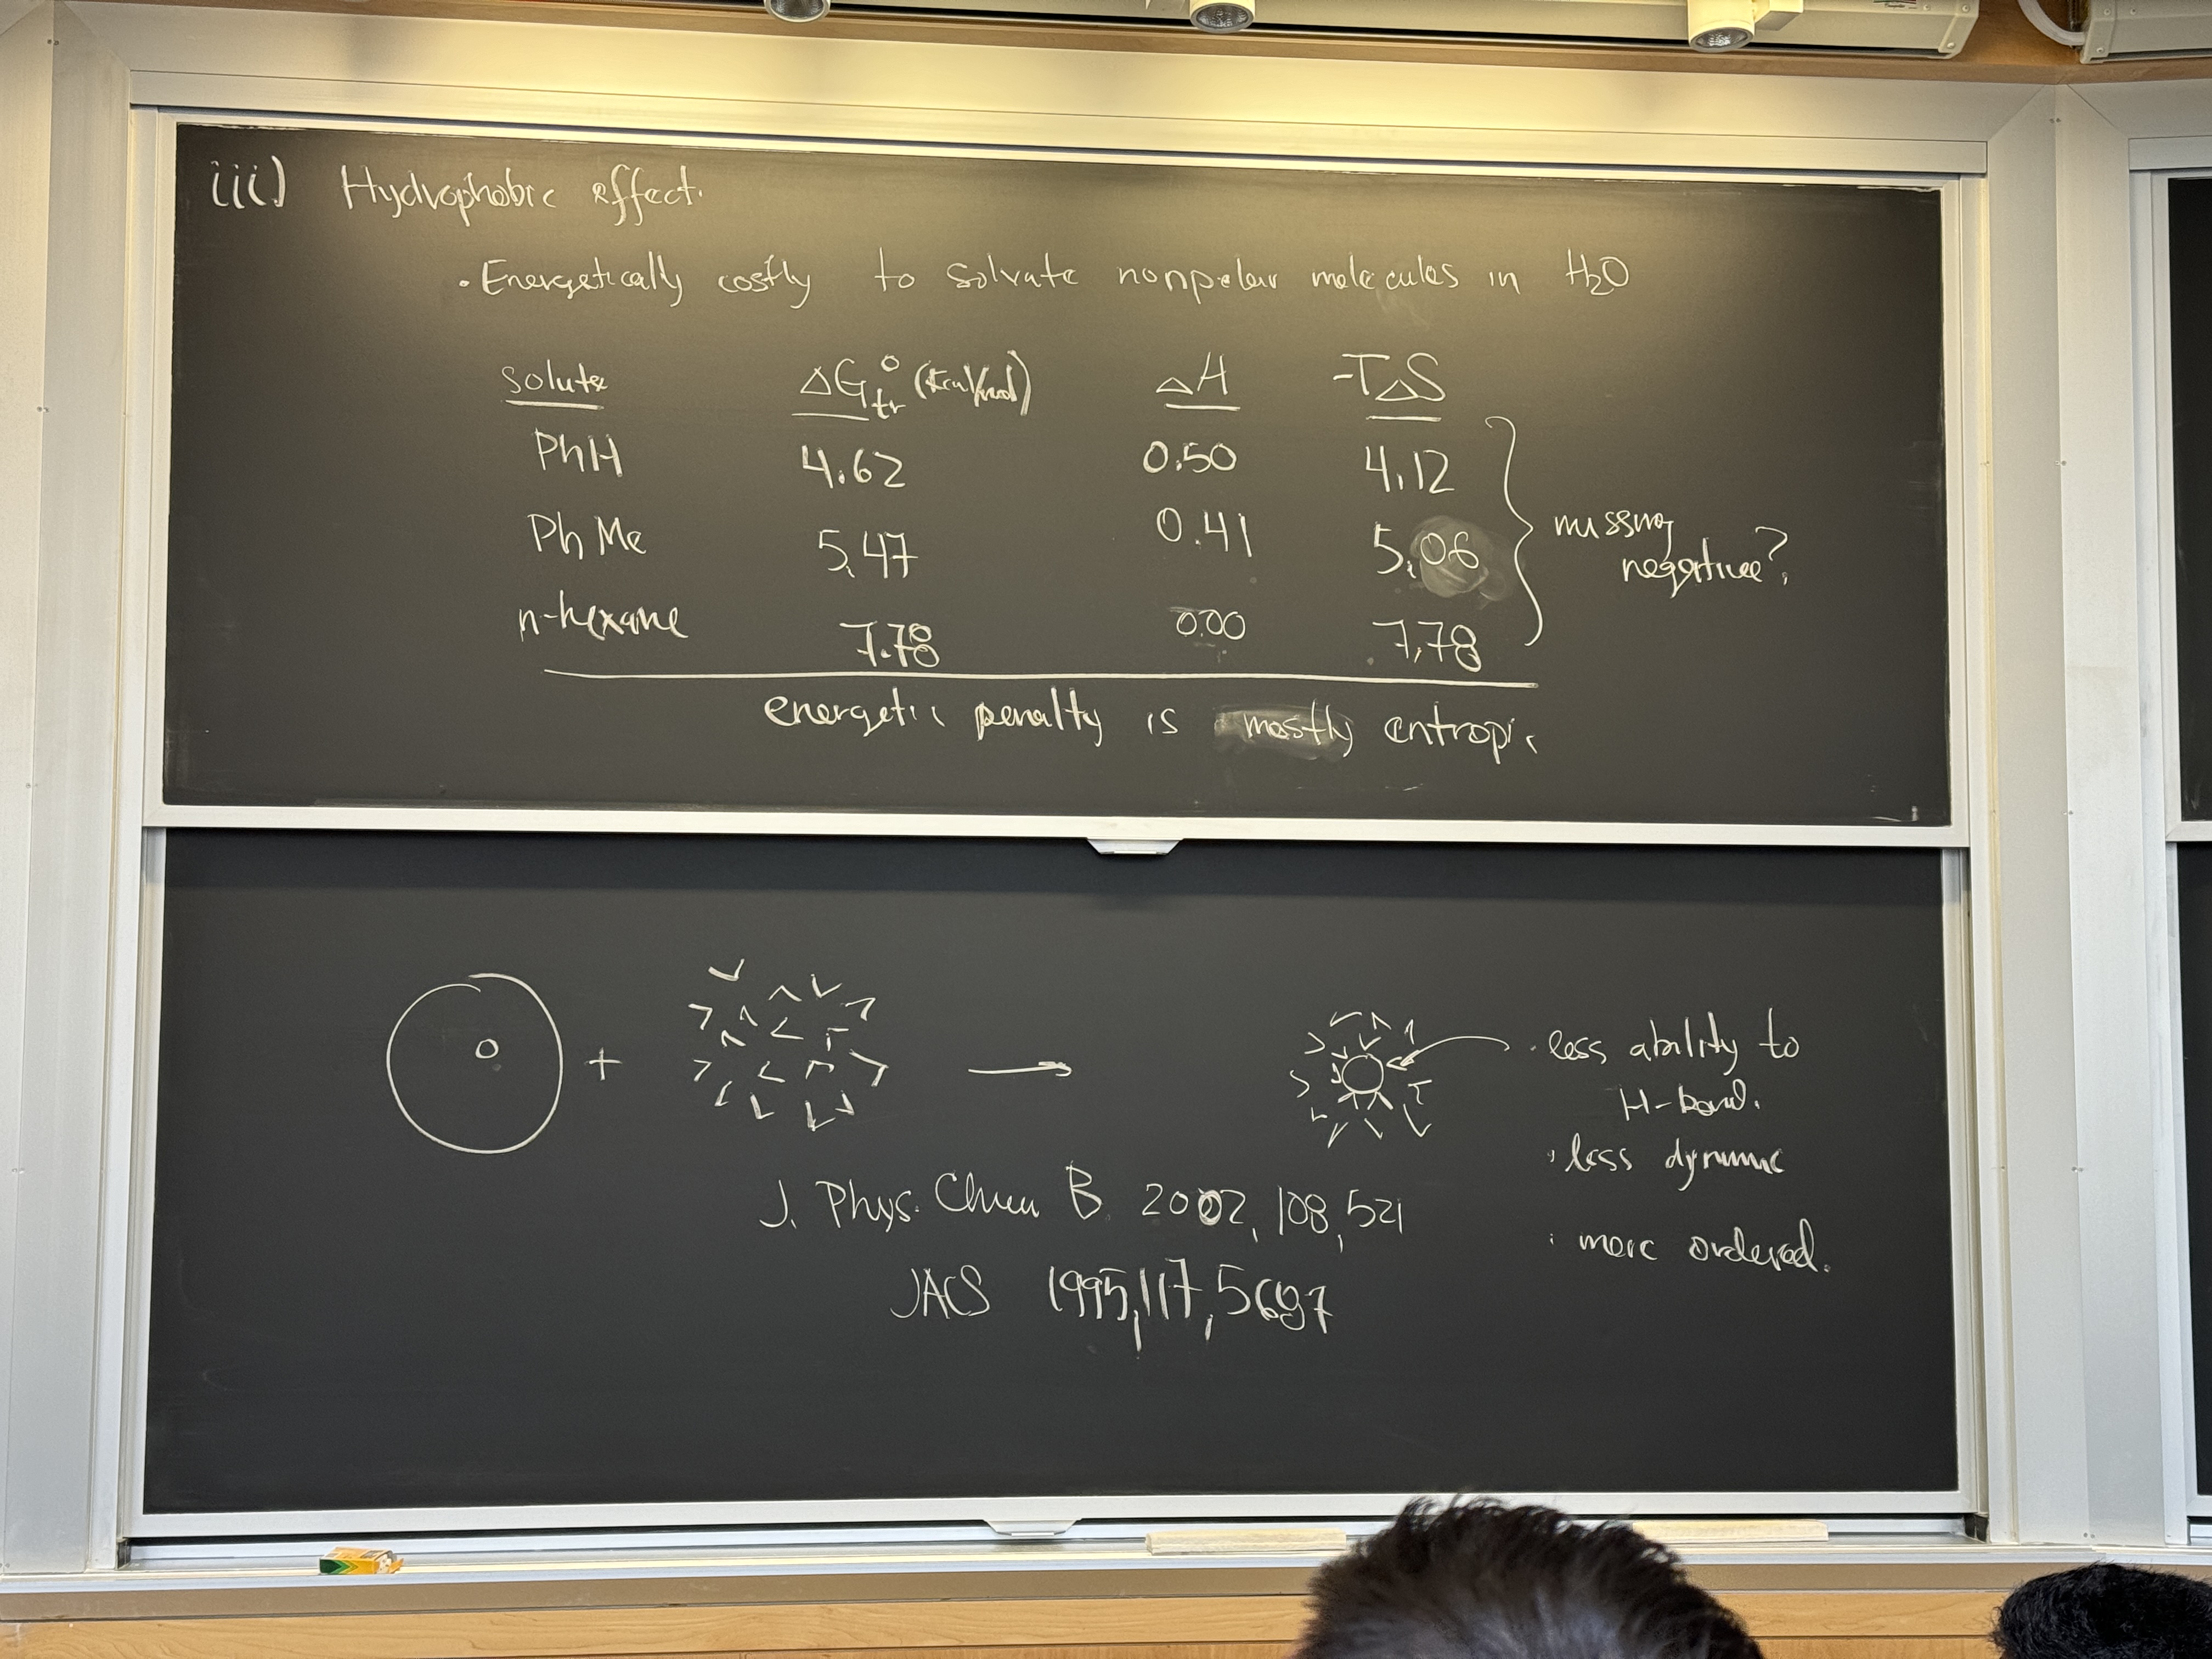 iii) Hydrophobic effect.
· Energetically costly to solvate nonpolar molecules in H₂O
solute ΔG°tr (kcal/mol) ΔH -TΔS
PhH 4.62 0.50 4.12
PhMe 5.47 0.41 5.06
n-hexane 7.78 0.00 7.78
missing
negative?
energetic penalty is mostly entropic
+ → · less ability to
H-bond.
· less dynamic
· more ordered.
J. Phys. Chem B. 2002, 108, 521
JACS 1995, 117, 5697